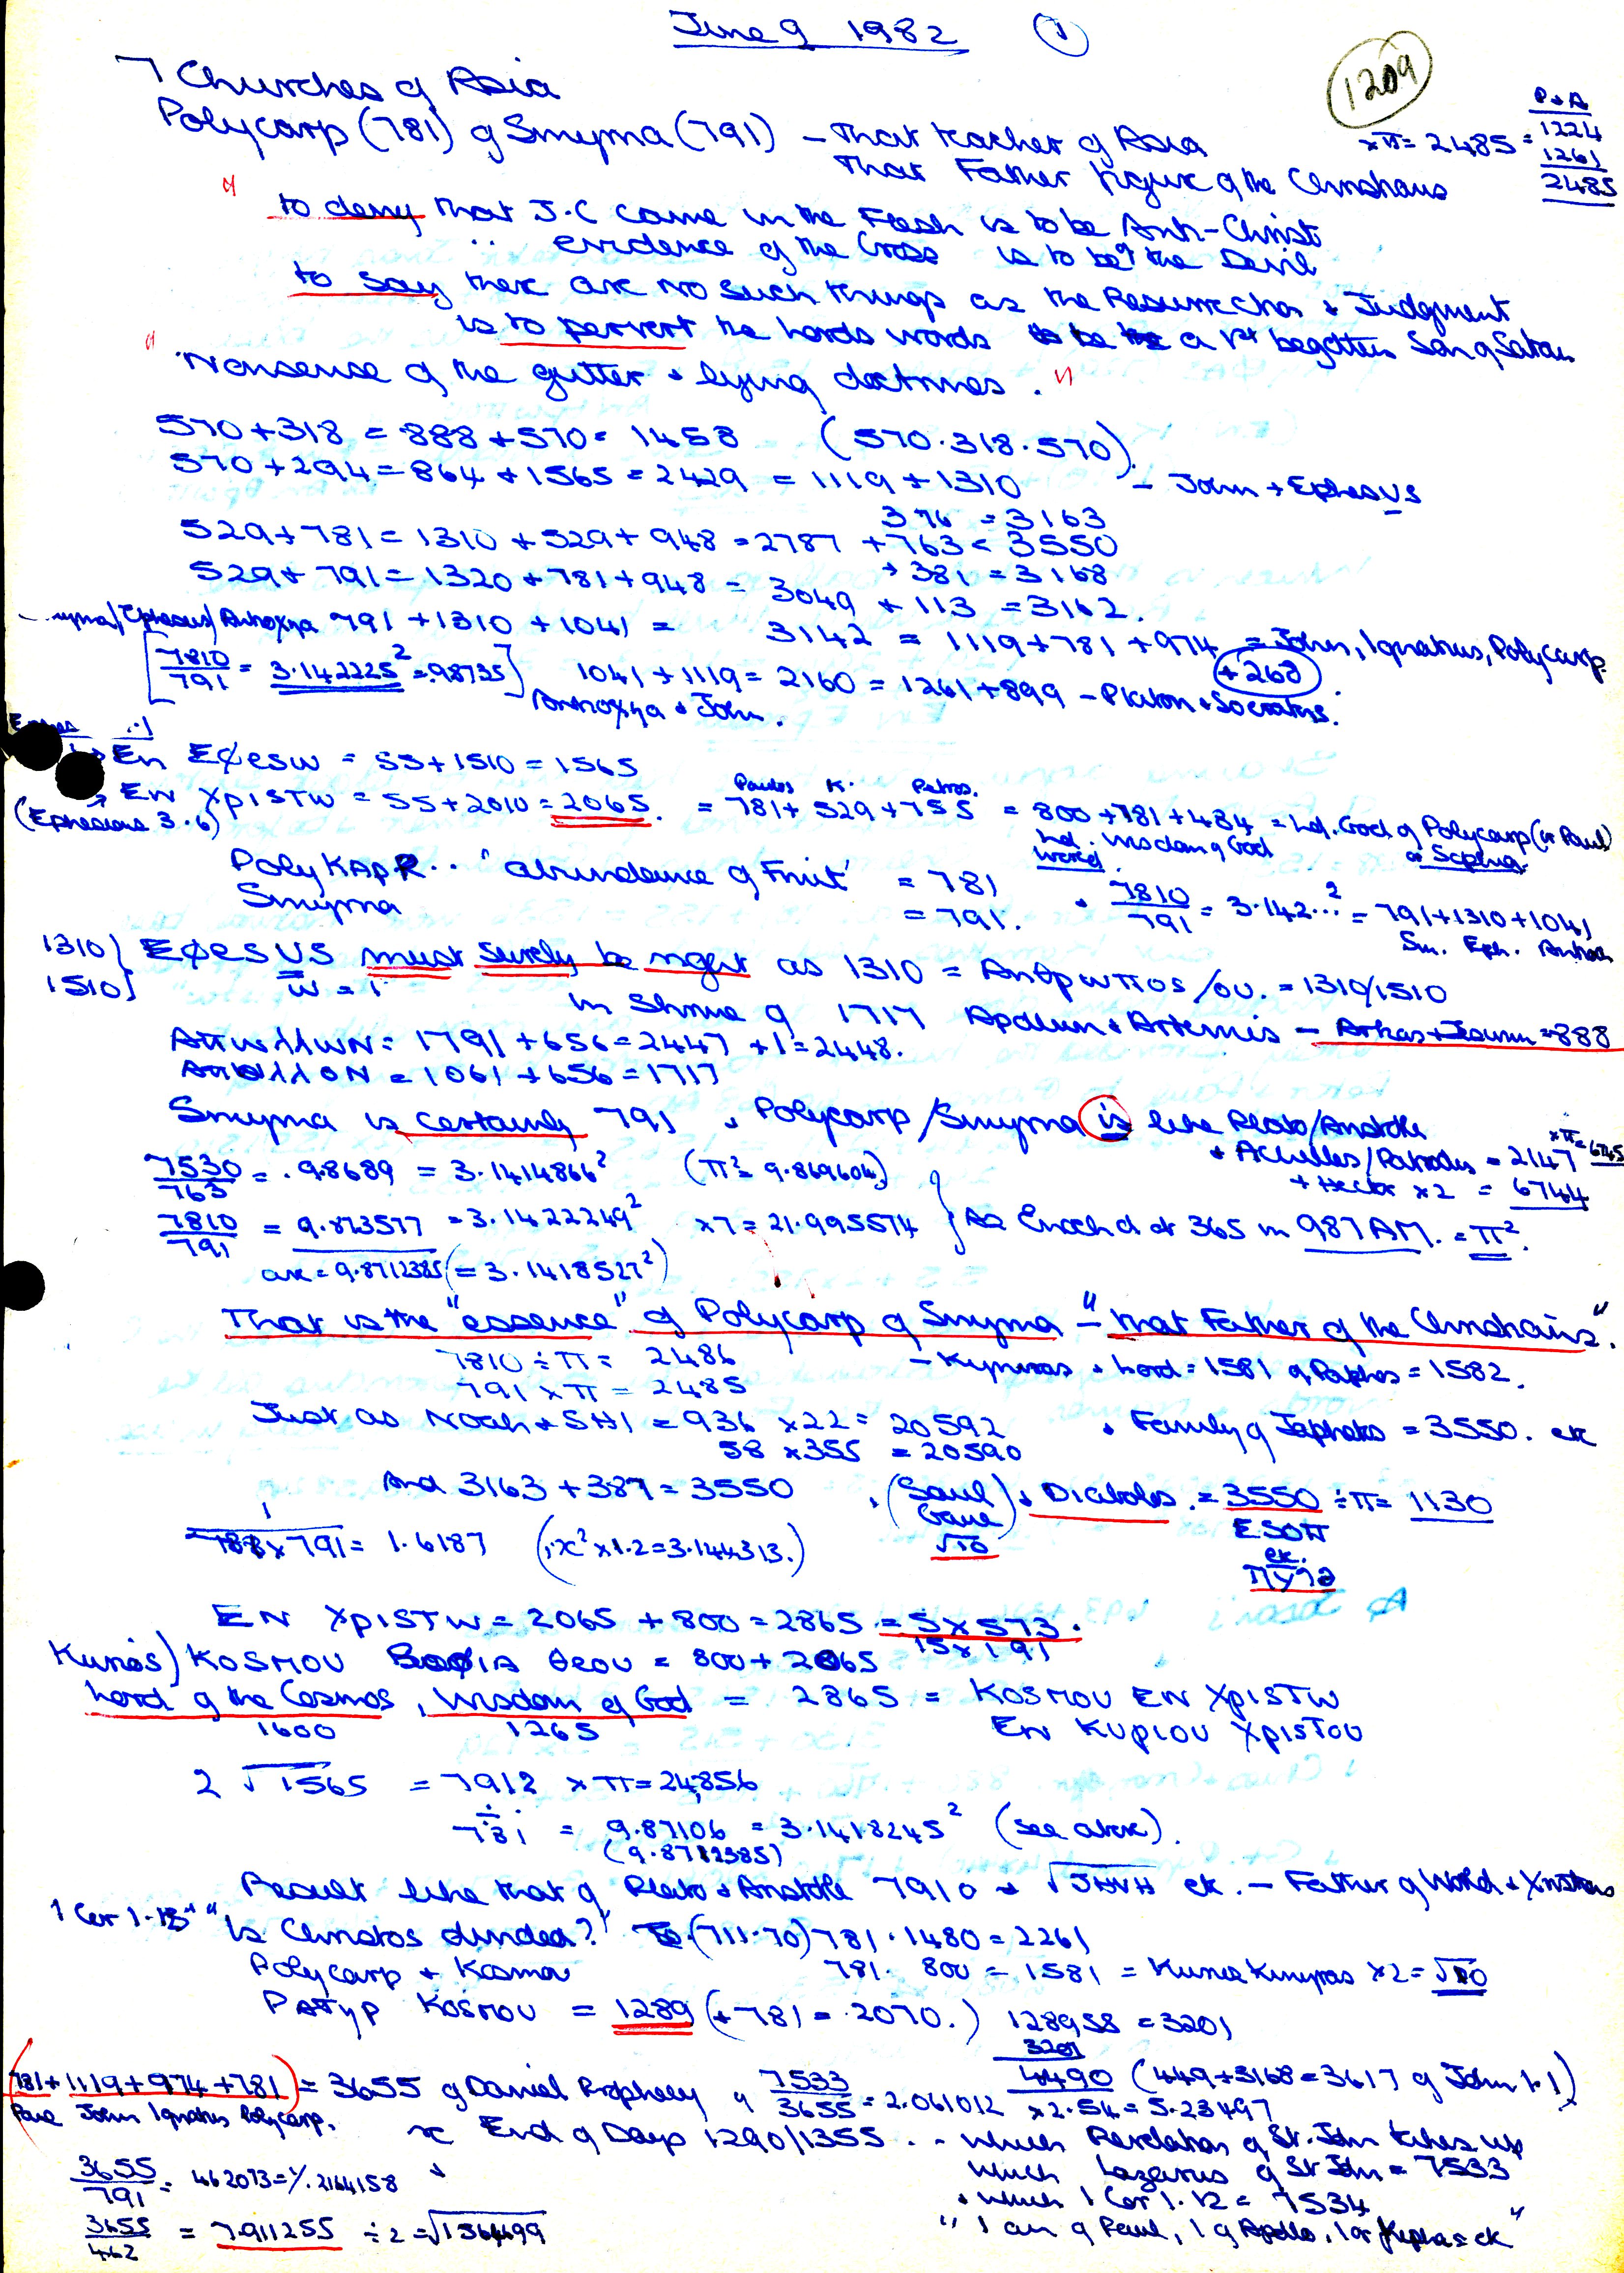 June 9 1982 (1)
1209
7 Churches of Asia
P+A
1224
1261
2485
xπ = 2485 =
Polycarp (781) of Smyrna (791) - That teacher of Asia
That Father figure of the Christians
" to deny that J.C came in the Flesh is to be Anti-Christ
.. evidence of the Cross is to be of the Devil
to say there are no such things as the Resurrection + Judgment
is to pervert the Lords words to be the a 1st begotten Son of Satan
" Nonsense of the gutter + lying doctrines. "
570+318 = 888 +570 = 1458 (570.318.570)
570+294 = 864 +1565 = 2429 = 1119+1310 - John + Ephesus
376 = 3163
529+781 = 1310 +529+948 = 2787 +763 = 3550
529+791 = 1320 +781+948 = 3049 + 381 = 3168
+ 113 = 3162.
Smyrna/Ephesus/Antioxya 791 +1310 +1041 = 3142 = 1119+781 +974 = John, Ignatius, Polycarp.
+268
[7810/791 = 3.142225² = 9.8735] 1041+1119 = 2160 = 1261+899 - Platon + Socrates.
Antioxya + John.
En Eφesw = 55+1510 = 1565
→ EN XpISTW = 55+2010 = 2065. = 781+ 529 +755 = 800 +781+484 = Ld. God of Polycarp (or Paul)
Paulos K. Petros.
(Ephesians 3.6)
Ld. Wisdom of God or Sophia
World
PolyKApR .. 'abundance of Fruit' = 781
Smyrna = 791. + 7810/791 = 3.142...² = 791+1310+1041
Sm. Eph. Antioch
1310) EφESUS must surely be right as 1310 = ANθpwπOS/OU. = 1310/1510
1510) w = 1
in Shrine of 1717 Apollun + Artemis - Arkas + Jesoun = 888
AπwλλwN = 1791 +656 = 2447 +1 = 2448.
AπOλλON = 1061 +656 = 1717
Smyrna is certainly 791 , Polycarp/Smyrna is like Plato/Aristotle
+ Achilles/Patroclus = 2147 xπ = 6745
+ Hector x2 = 6744
7530/763 = .98689 = 3.1414866² (π² = 9.869604)
7810/791 = 9.873577 = 3.1422249² x7 = 21.995574 } As Enoch d at 365 in 987 AM. = π².
ave = 9.8712385 (= 3.1418527²)
That is the "essence" of Polycarp of Smyrna - "that Father of the Christians".
7810 ÷ π = 2486 - Kynuras + Lord = 1581 of Paphos = 1582.
791 x π = 2485
Just as Noah + SHI = 936 x22 = 20592 + Family of Japhetos = 3550. etc
58 x355 = 20590
And 3163 +387 = 3550 , (Saul) + Diabolos. = 3550 ÷π = 1130
√10
ESOπ
etc.
788 x 791 = 1.6187 (x² x 1.2 = 3.144313.)
EN XpISTW = 2065 + 800 = 2865 = 5x573.
15x191
Kurios) KOSMOU SOφIA θeOU = 800+2065
Lord of the Cosmos, Wisdom of God = 2865 = KOSMOU EN XpISTW
1600 1265 EN KUpIOU XpISTOU
2 √1565 = 7912 xπ = 24,856
÷ 781 = 9.87106 = 3.1418245² (see above).
(9.8712385)
Result like that of Plato + Aristotle 7910 + √JHVH etc. - Father of World + Xristians
1 Cor 1.13 " Is Christos divided?" (711.70) 781.1480 = 2261
Polycarp + Kosmou 781. 800 = 1581 = Kurios Kinyras x2 = √10
PATyp KOSMOU = 1289 (+781 = 2070.) 128958 = 3201
3201
(781+1119+974+781) = 3655 of Daniel Prophecy of 7533/3655 = 2.061012 4490 (449+3168 = 3617 of John 1.1)
x2.54 = 5.23497
Paul John Ignatius Polycarp.
ie End of Days 1290/1355 .. which Revelation of St. John takes up
which Lazarus of St John = 7533
+ which 1 Cor 1.12 = 7534
" I am of Paul, I of Apollo, I of Kephas etc "
3655/791 = 4.62073 = 1/.2164158
3655/462 = 7.911255 ÷2 = √1564499